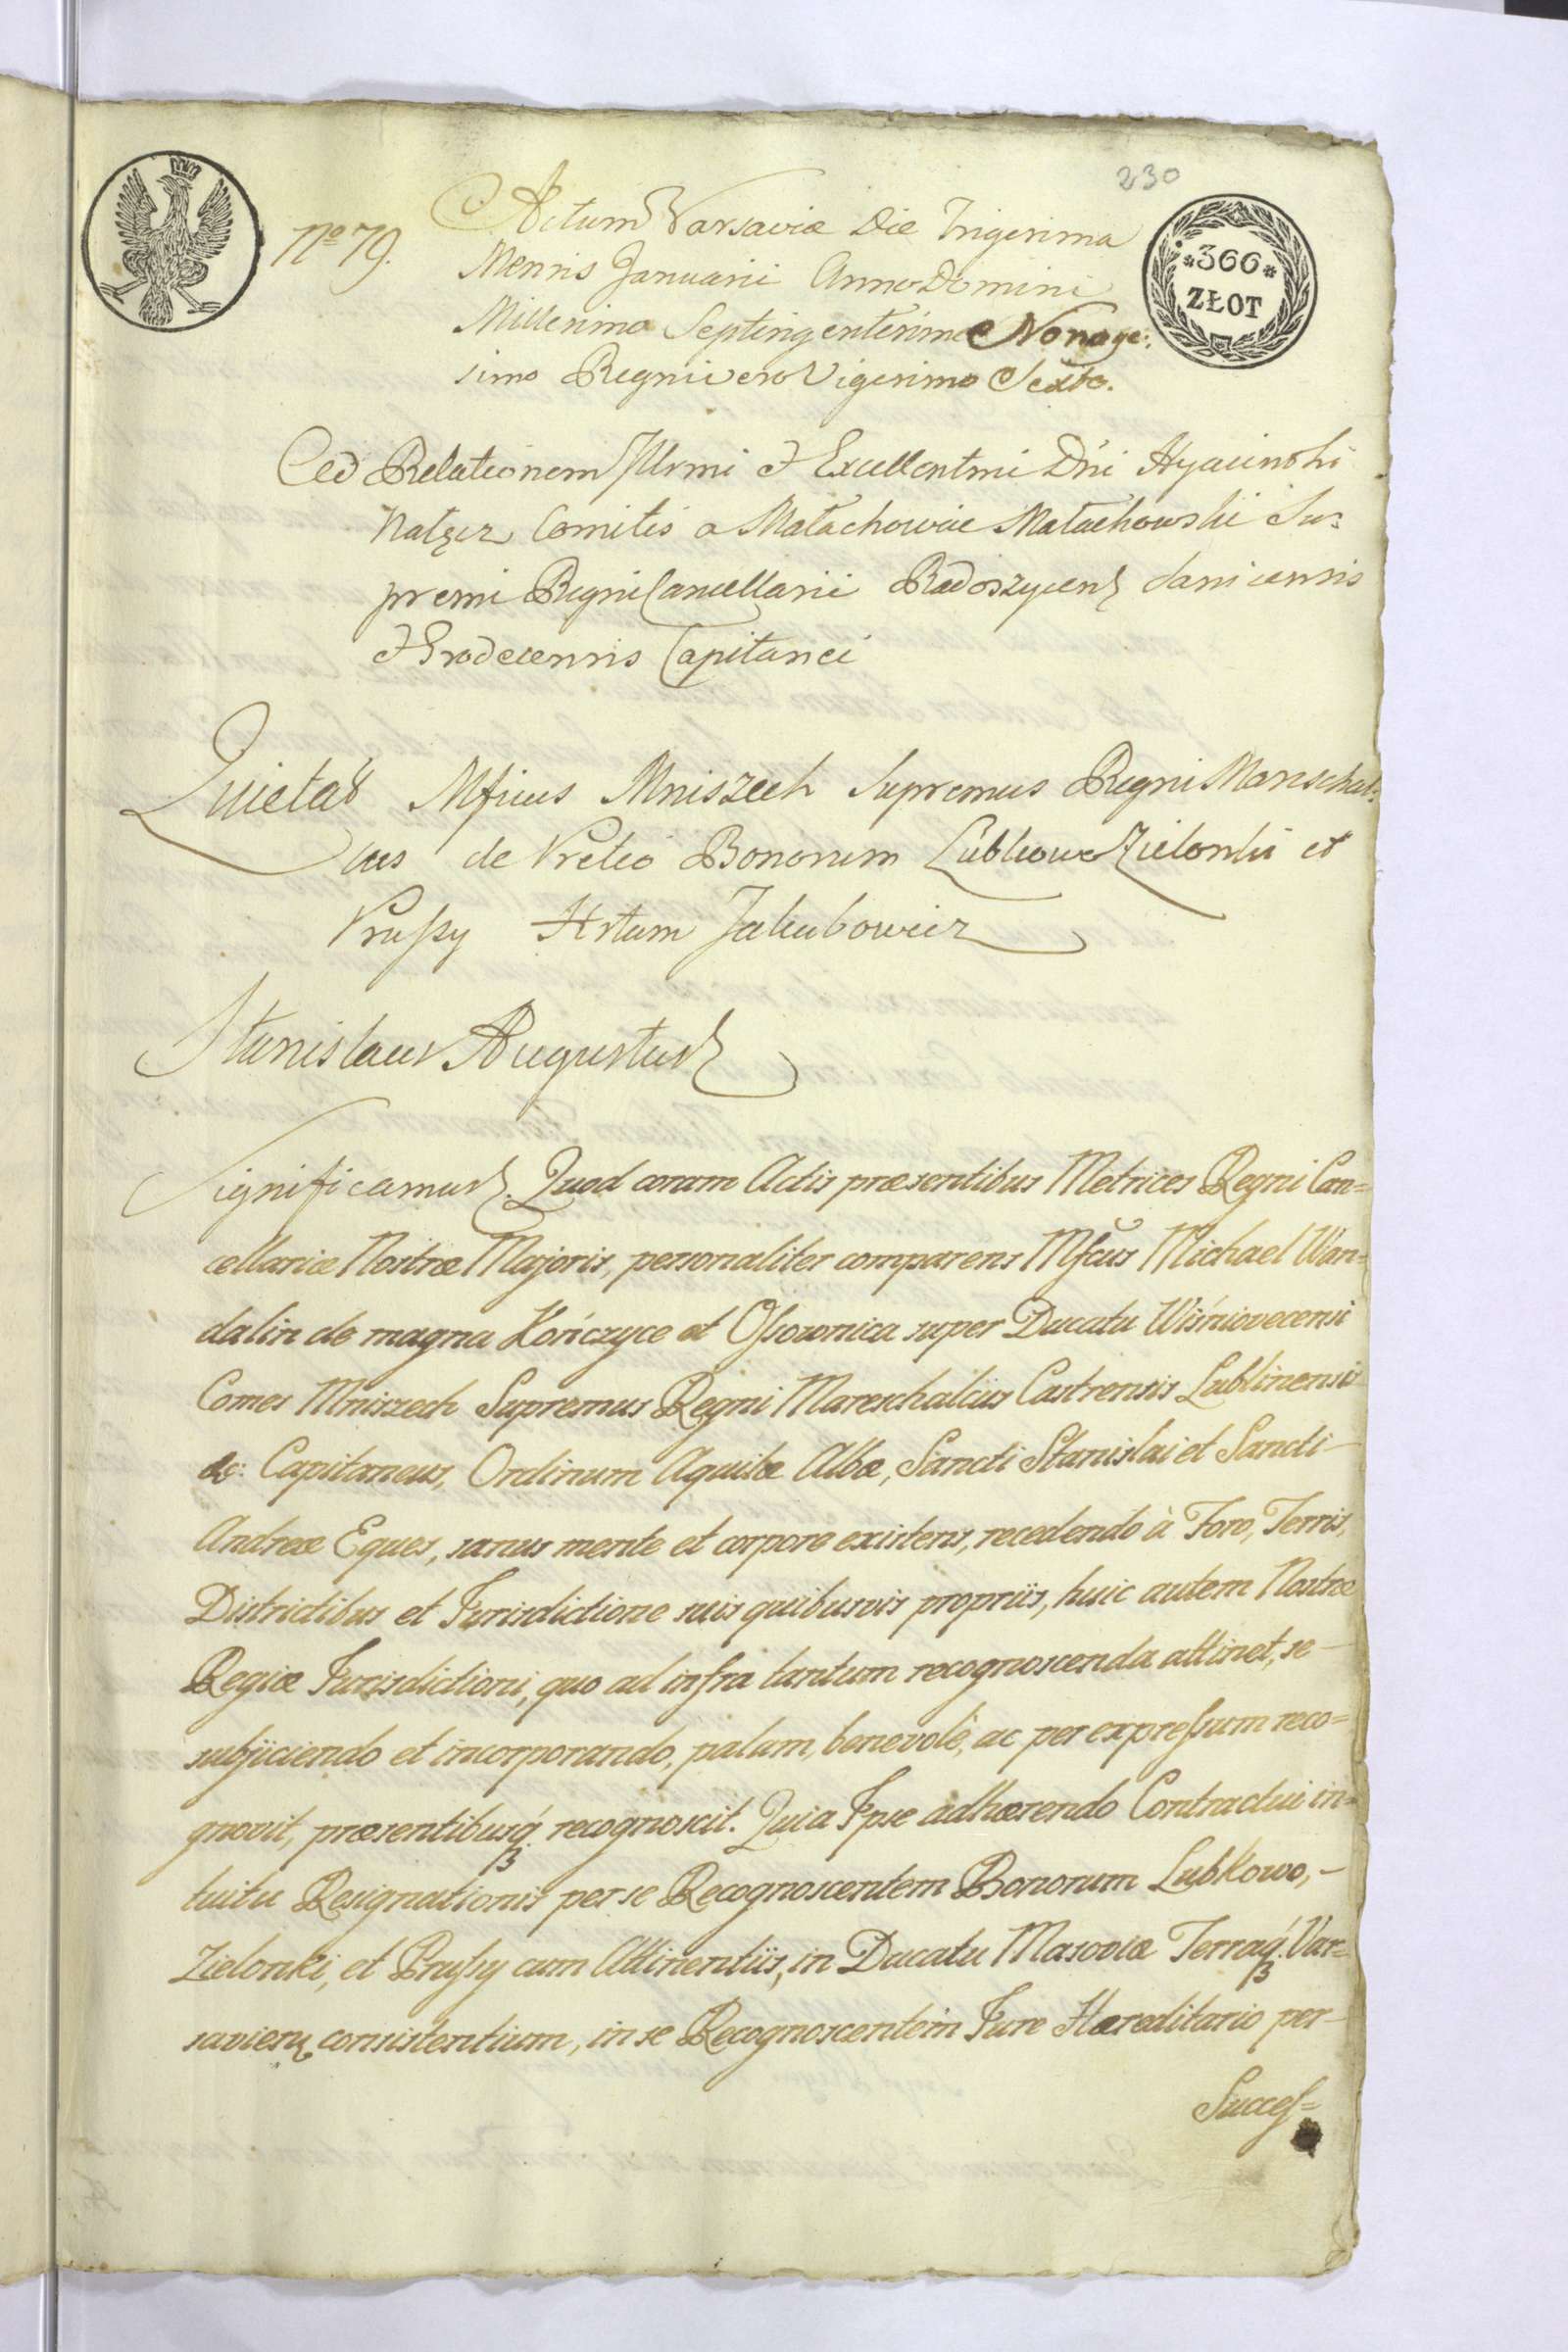 230
No 79.
Actum Varsaviæ Die Trigesima
Mensis Januarii Anno Domini
Millesimo Septingentesimo Nonage:
simo Regni vero Vigesimo Sexto.
*366*
ZŁOT
Ad Relationem Illrmi & Excellentmi Dni Hyacinthi
Nałęcz Comitis a Małachowice Małachowski Su-
premi Regni Cancellarii Radoszycens Sanicensis
& Grodecensis Capitanei
Quietat Mficus Mniszech Supremus Regni Marschal:
cus de Pretio Bonorum Lubkowo Zielonki et
Prussy Hrtum Jakubowicz
Stanislaus Augustus
Significamus. Quod coram Actis præsentibus Metrices Regni Can=
cellariæ Nostræ Majoris, personaliter comparens Mfcus Michael Wan=
dalin de magna Kończyce et Ossownica super Ducatu Wiśniovecensi
Comes Mniszech Supremus Regni Mareschalcus Castrensis Lublinensis
&c: Capitaneus, Ordinum Aquilæ Albæ, Sancti Stanislai et Sancti
Andreæ Eques, sanus mente et corpore existens, recedendo à Foro, Terris,
Districtibus et Jurisdictione suis quibusvis propriis, huic autem Nostræ
Regiæ Jurisdictioni, quo ad infra tantum recognoscenda attinet, se
subjiciendo et incorporando, palam, benevolè, ac per expressum reco=
gnovit, præsentibusq́ recognoscit. Quia Ipse adhærendo Contractui in=
tuitu Resignationis per se Recognoscentem Bonorum Lubkowo,
Zielonki, et Prussy cum Attinentiis, in Ducatu Masoviæ Terraq́ Var=
saviens consistentium, in se Recognoscentem Jure Hæreditario per
Success=